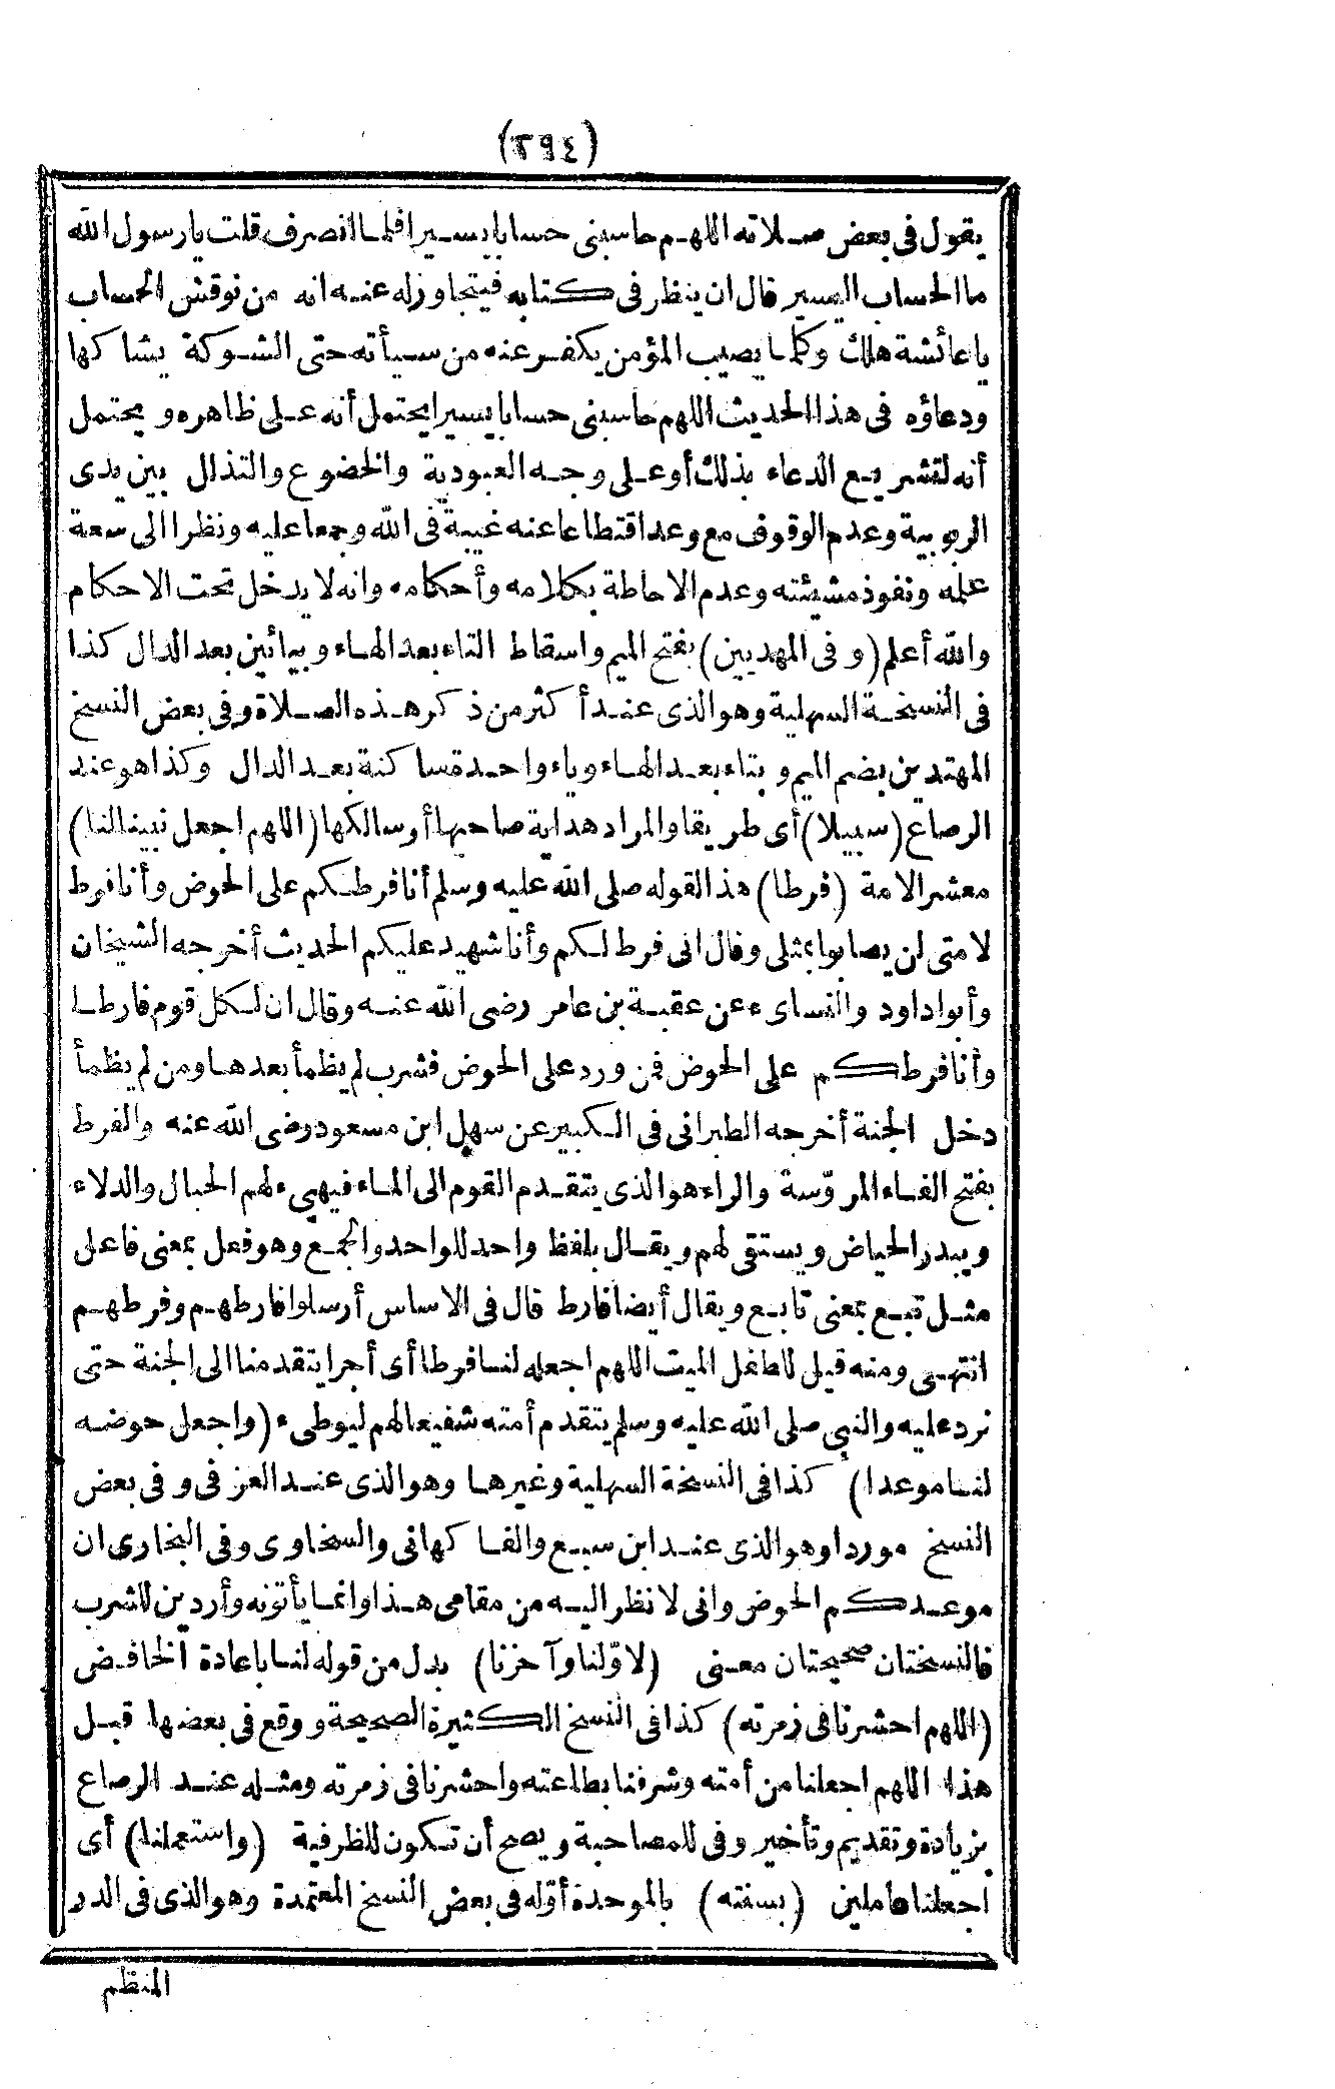 (٢٩٤)
يقول في بعض صلاته اللهم حاسبني حسابا يسيرا فلما انصرف قلت يا رسول الله
ما الحساب اليسير قال ان ينظر في كتابه فيتجاوز له عنه انه من نوقش الحساب
يا عائشة هلك وكلما يصيب المؤمن يكفر عنه من سيأته حتى الشوكة يشاكها
ودعاؤه في هذا الحديث اللهم حاسبني حسابا يسيرا يحتمل أنه على ظاهره ويحتمل
أنه لتشريع الدعاء بذلك أو على وجه العبودية والخضوع والتذلل بين يدى
الربوبية وعدم الوقوف مع وعد اقتطاعا عنه غيبة في الله وجمعا عليه ونظرا الى سعة
علمه ونفوذ مشيئته وعدم الاحاطة بكلامه وأحكامه وانه لا يدخل تحت الاحكام
والله أعلم (وفى المهديين) بفتح الميم واسقاط التاء بعد الهاء وبيائين بعد الدال كذا
في النسخة السهلية وهو الذى عند أكثر من ذكر هذه الصلاة وفي بعض النسخ
المهتدين بضم الميم وبتاء بعد الهاء وياء واحدة ساكنة بعد الدال وكذا هو عند
الرصاع (سبيلا) أى طريقا والمراد هداية صاحبها أو سالكها (اللهم اجعل نبينا لنا)
معشر الامة (فرطا) هذا لقوله صلى الله عليه وسلم أنا فرطكم على الحوض وأنا فرط
لامتى لن يصابوا بمثلى وقال انى فرط لكم وأنا شهيد عليكم الحديث أخرجه الشيخان
وأبوا داود والنساىء عن عقبة بن عامر رضى الله عنه وقال ان لكل قوم فارطا
وأنا فرطكم على الحوض فمن ورد على الحوض فشرب لم يظمأ بعدها ومن لم يظمأ
دخل الجنة أخرجه الطبرانى في الكبير عن سهل ابن مسعود رضى الله عنه والفرط
بفتح الفاء المروّسة والراء هو الذى يتقدم القوم الى الماء فيهيىء لهم الحبال والدلاء
ويبدر الحياض ويستقى لهم ويقال بلفظ واحد للواحد والجمع وهو فعل بمعنى فاعل
مثل تبع بمعنى تابع ويقال أيضا فارط قال في الاساس أرسلوا فارطهم وفرطهم
انتهى ومنه قيل للطفل الميت اللهم اجعله لنا فرطا أى أجرا يتقدمنا الى الجنة حتى
نرد عليه والنبى صلى الله عليه وسلم يتقدم أمته شفيعا لهم ليوطىء (واجعل حوضه
لنا موعدا) كذا في النسخة السهلية وغيرها وهو الذى عند العزفى وفى بعض
النسخ موردا وهو الذى عند ابن سبع والفاكهانى والسخاوى وفى البخارى ان
موعدكم الحوض وانى لانظر اليه من مقامى هذا وانما يأتونه وأردين للشرب
فالنسختان صحيحتان معنى (لاوّلنا وآخرنا) بدل من قوله لنا باعادة الخافض
(اللهم احشرنا في زمرته) كذا في النسخ الكثيرة الصحيحة ووقع في بعضها قبل
هذا اللهم اجعلنا من أمته وشرفنا بطاعته واحشرنا في زمرته ومثله عند الرصاع
بزيادة وتقديم وتأخير وفى للمصاحبة ويصح أن تكون للظرفية (واستعملنا) أى
اجعلنا عاملين (بسنته) بالموحدة أوّله في بعض النسخ المعتمدة وهو الذى في الدر
المنظم